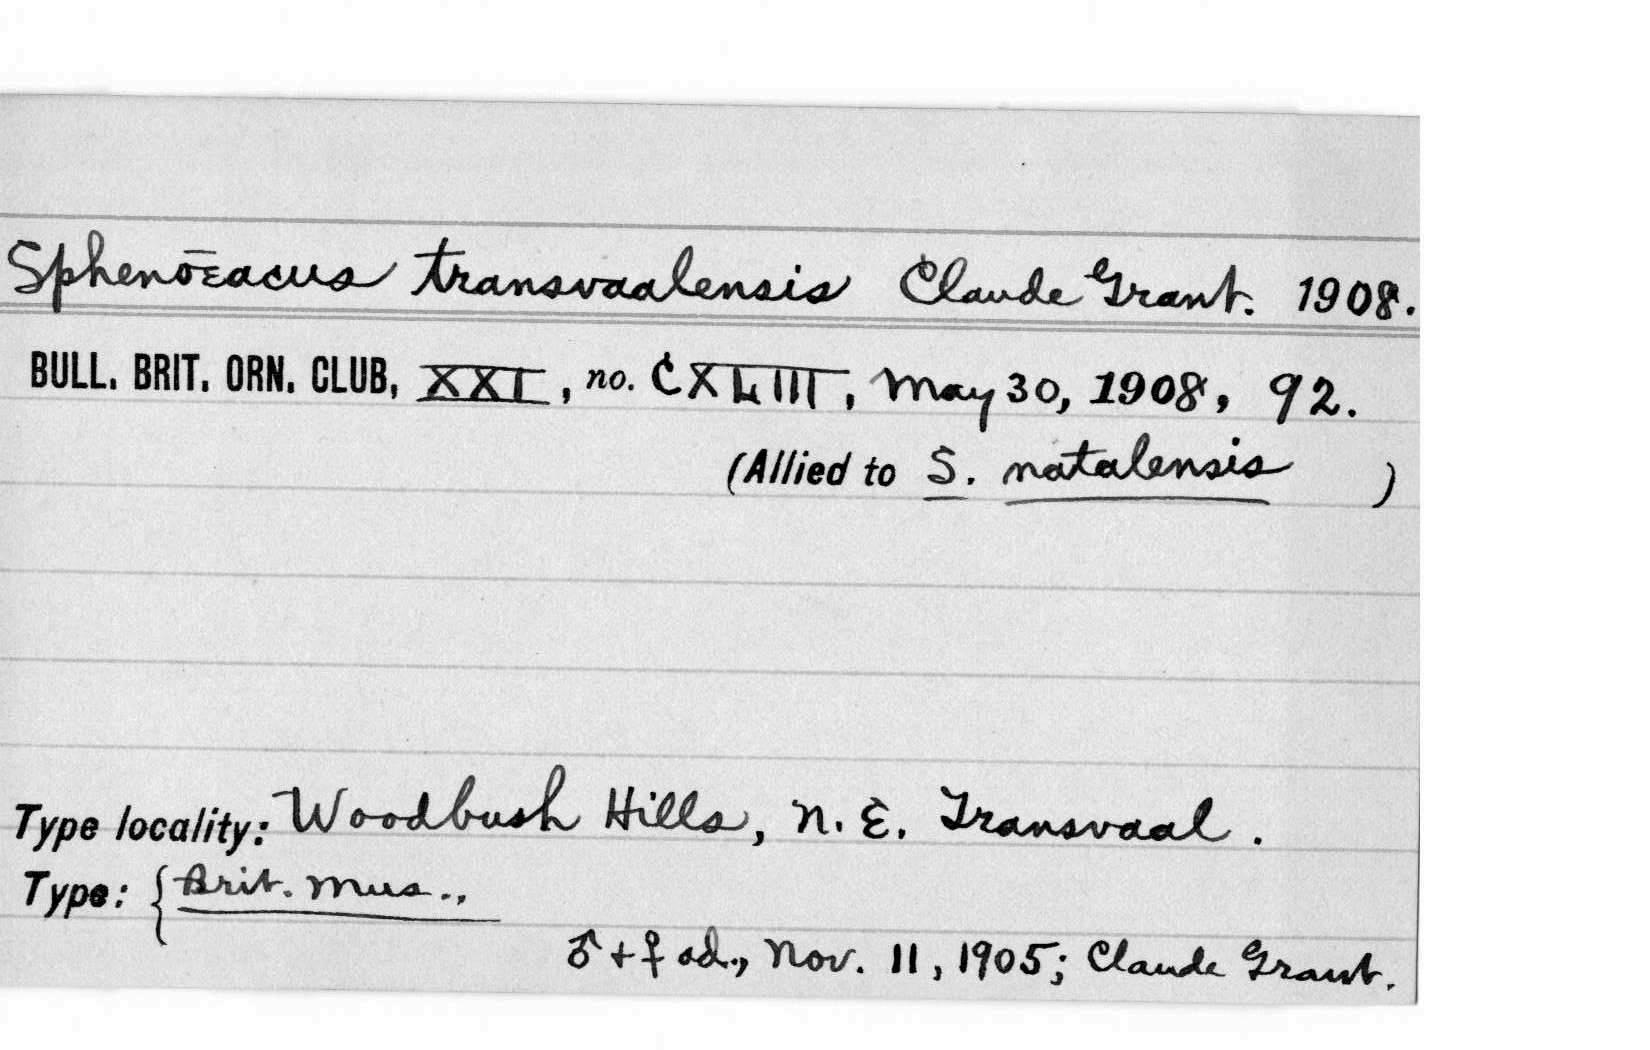 Sphenōeacus transvaalensis Claude Grant. 1908.
BULL. BRIT. ORN. CLUB, XXI, no. CXLIII, May 30, 1908, 92.
(Allied to S. natalensis )
Type locality: Woodbush Hills, N. E. Transvaal.
Type: { Brit. Mus..,
♂ + ♀ ad., Nov. 11, 1905; Claude Grant.